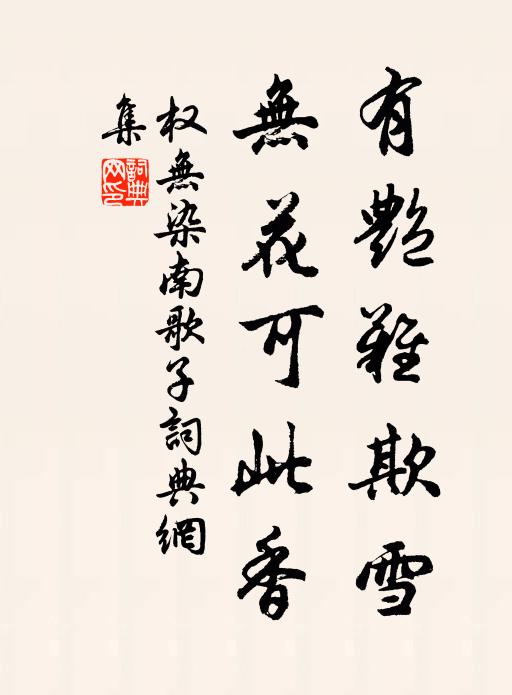 有艷難欺雪
無花可此香
权無染南歌子詞典網
集
詞典网印